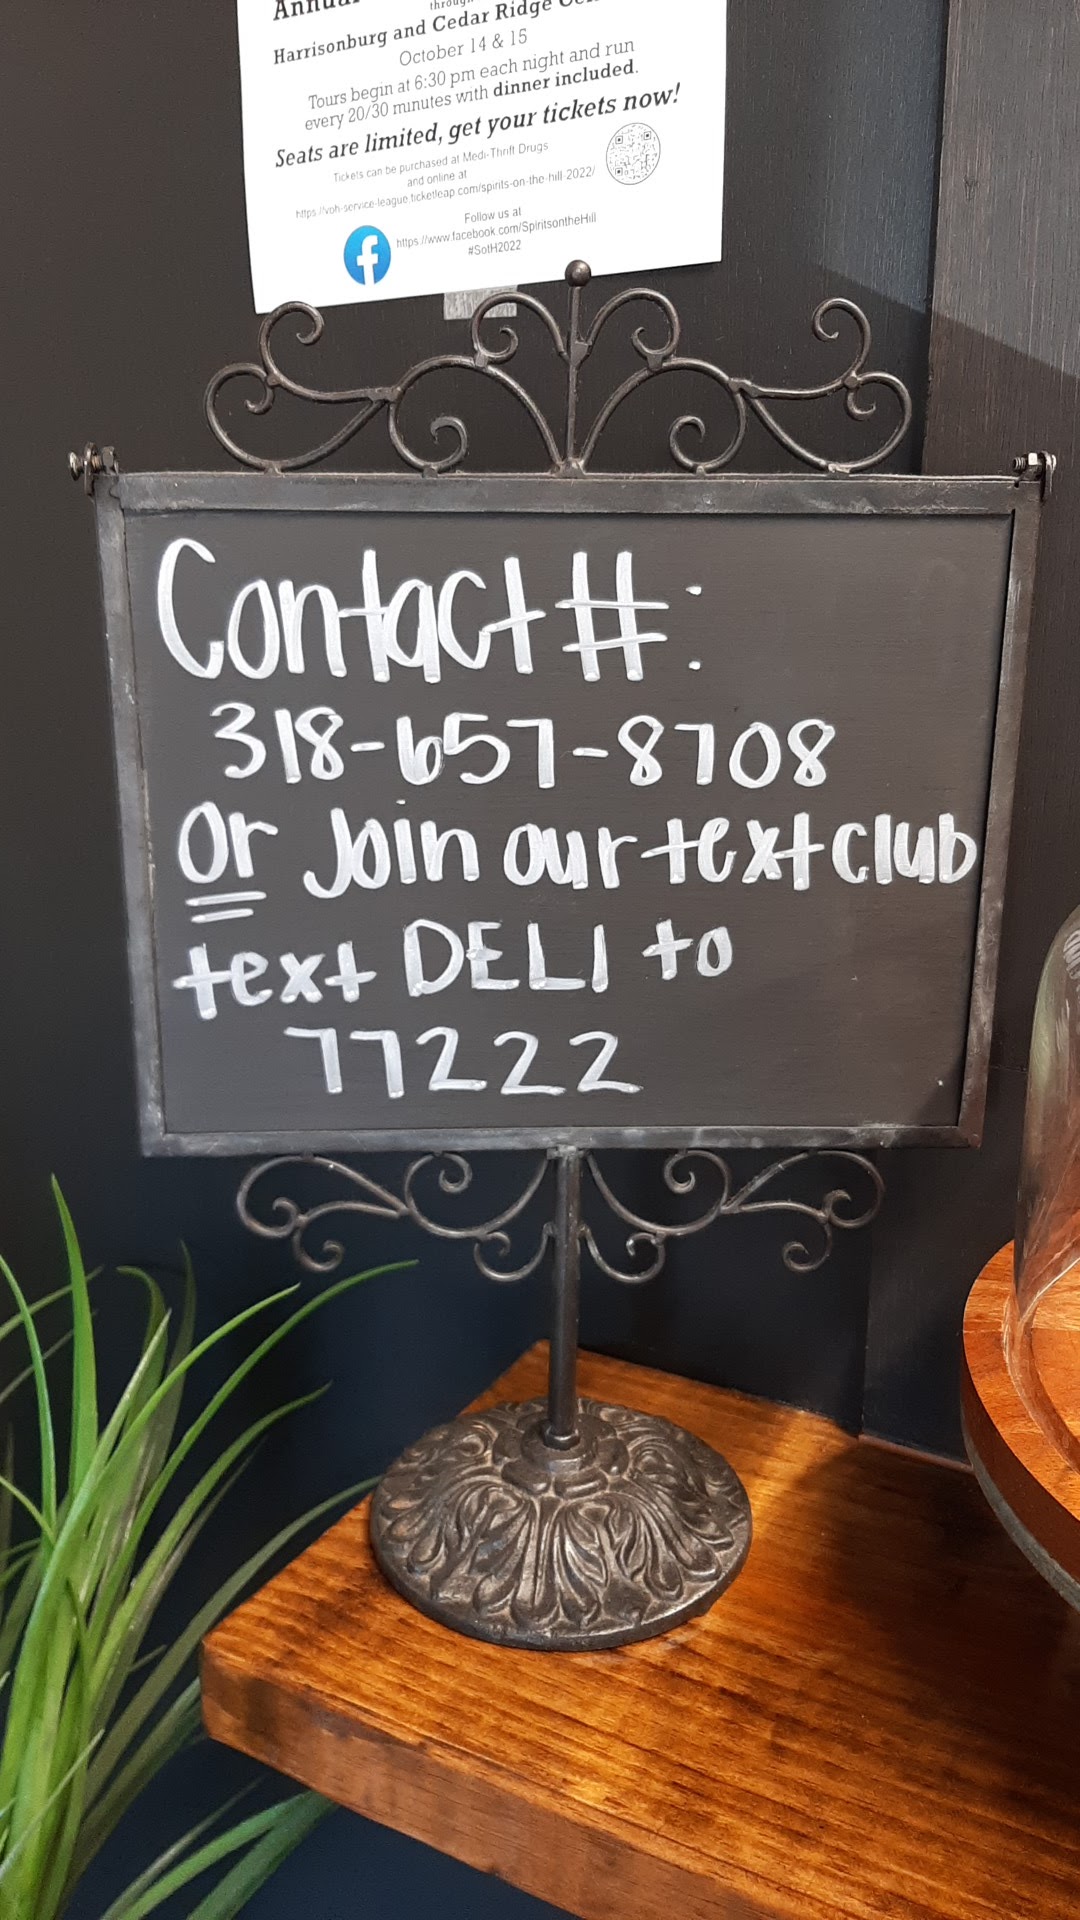 Annual
through
Harrisonburg and Cedar Ridge
October 14 & 15
Tours begin at 6:30 pm each night and run
every 20/30 minutes with dinner included.
Seats are limited, get your tickets now!
Tickets can be purchased at Medi-Thrift Drugs
and online at
https://voh-service-league.ticketleap.com/spirits-on-the-hill-2022/
Follow us at
https://www.facebook.com/SpiritsontheHill
#SotH2022
Contact #:
318-657-8708
or Join our text club
text DELI to
77222